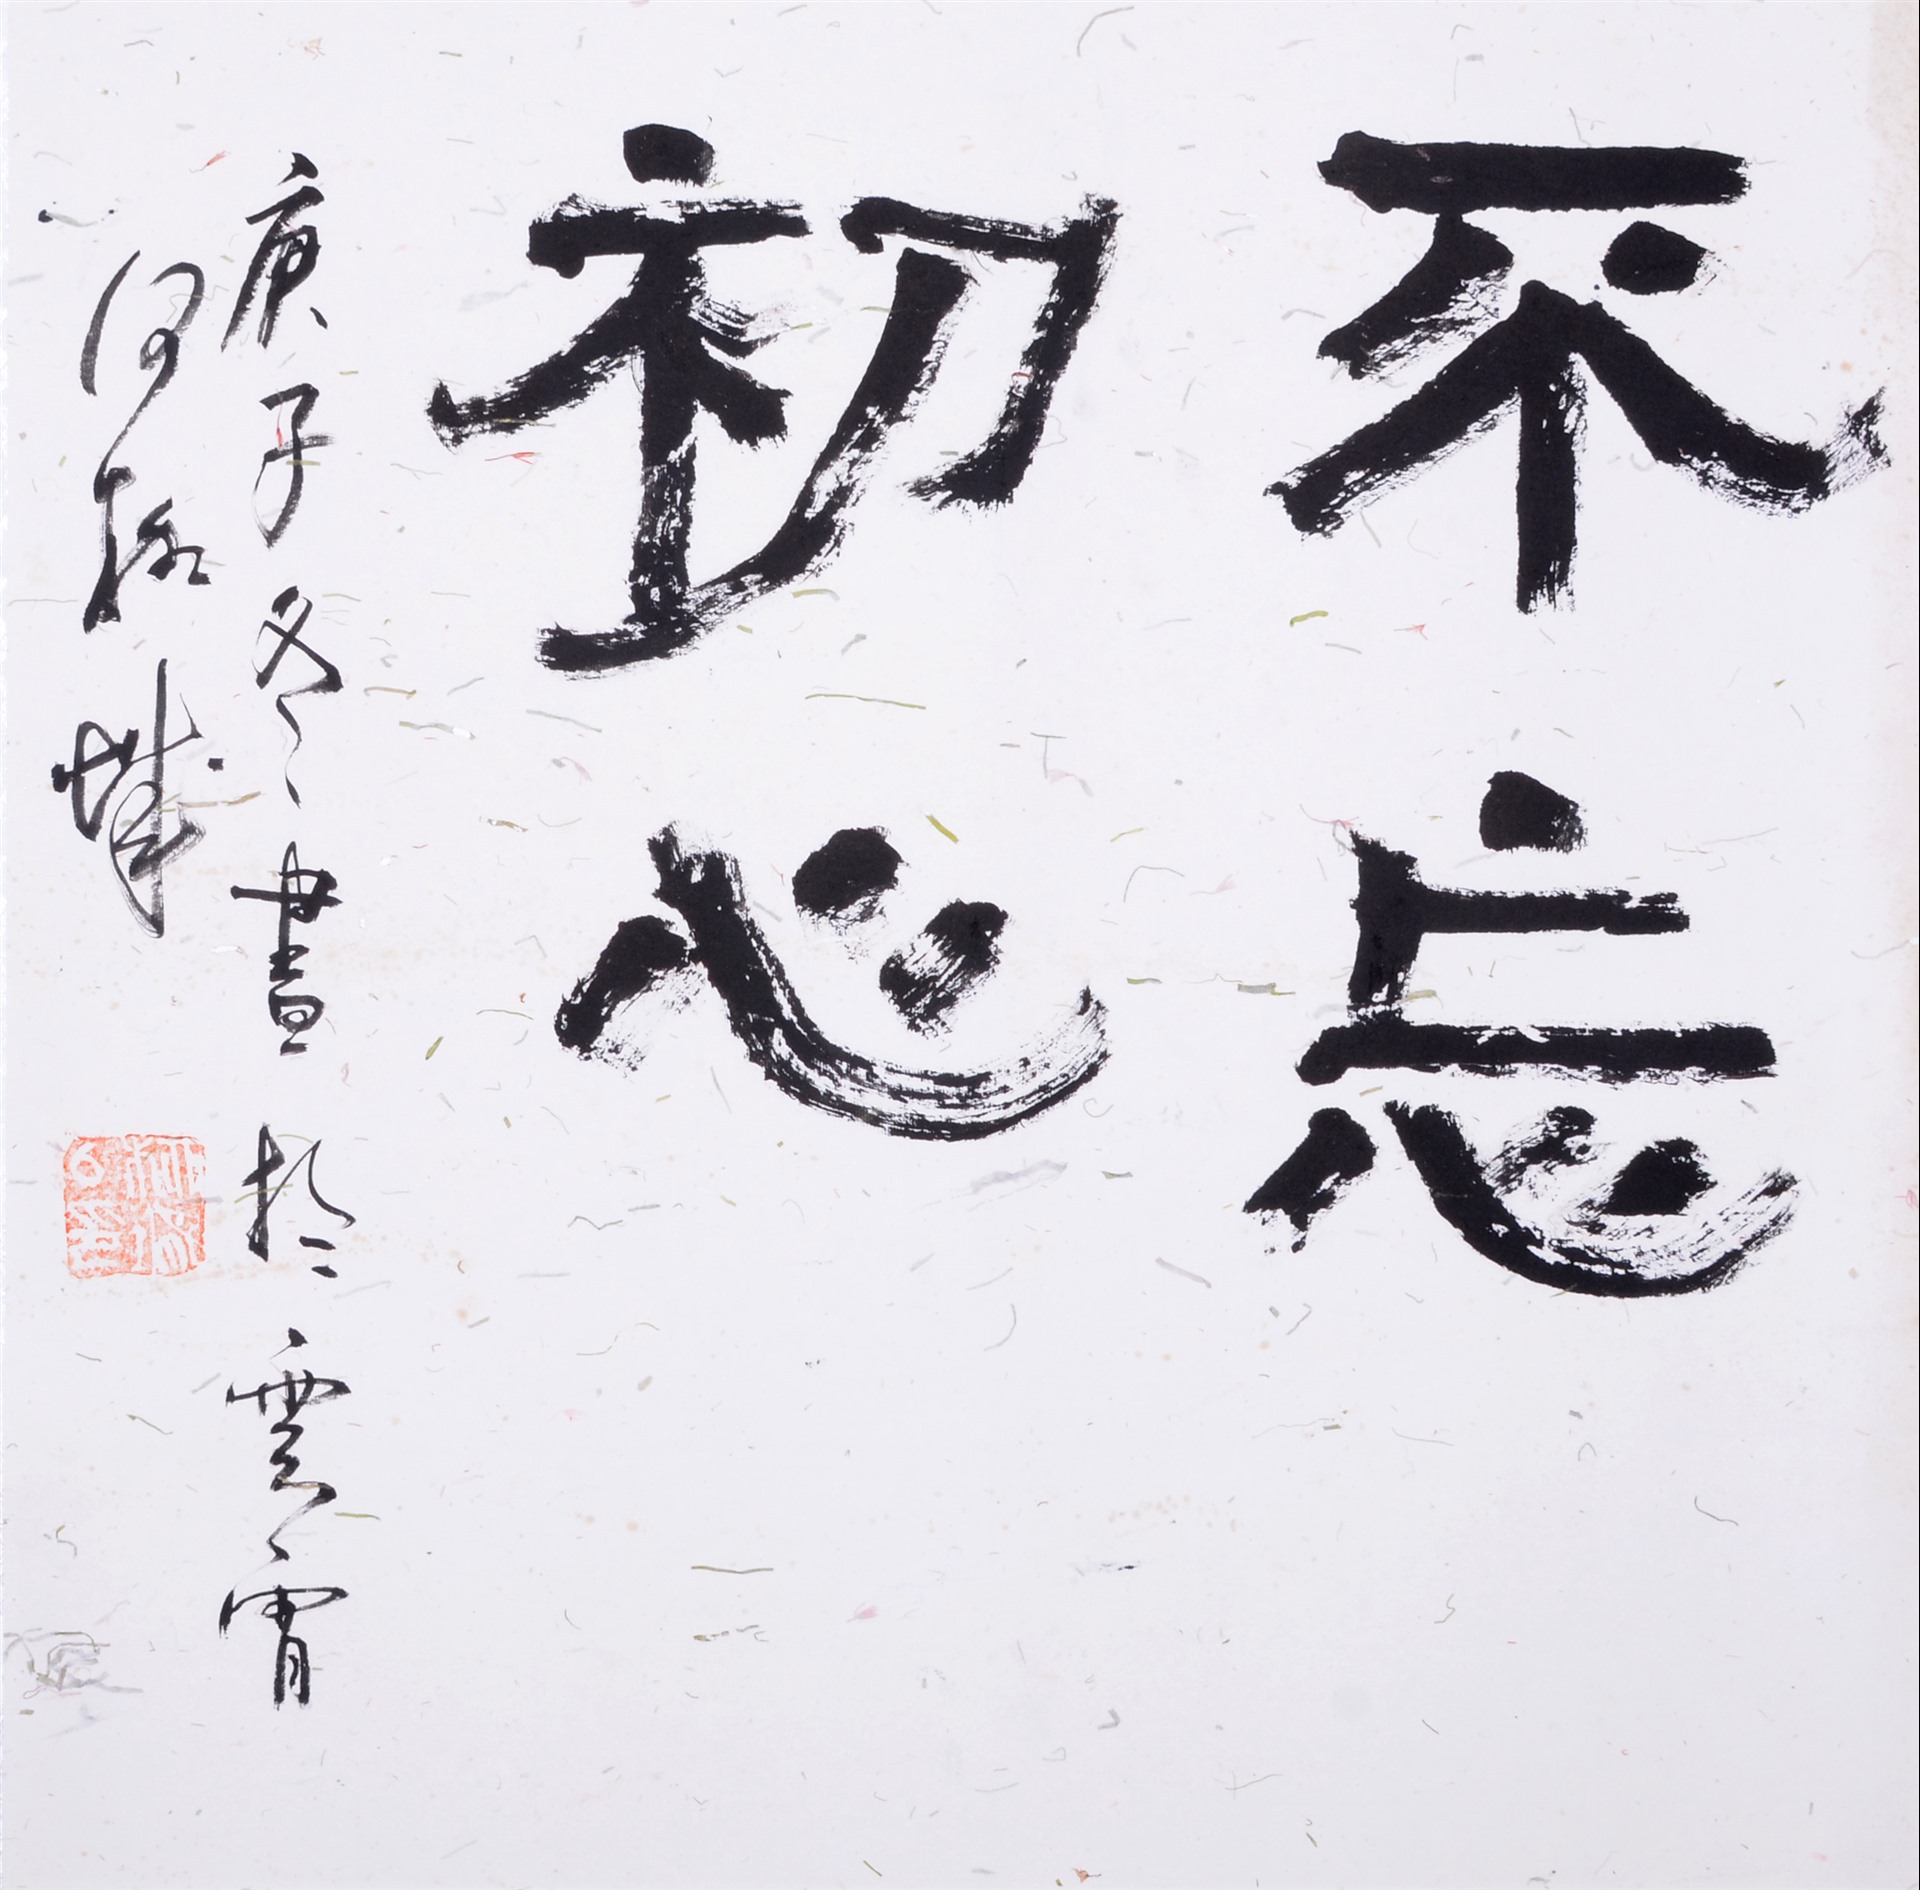 不忘
初心
庚子冬書於雲霄
何